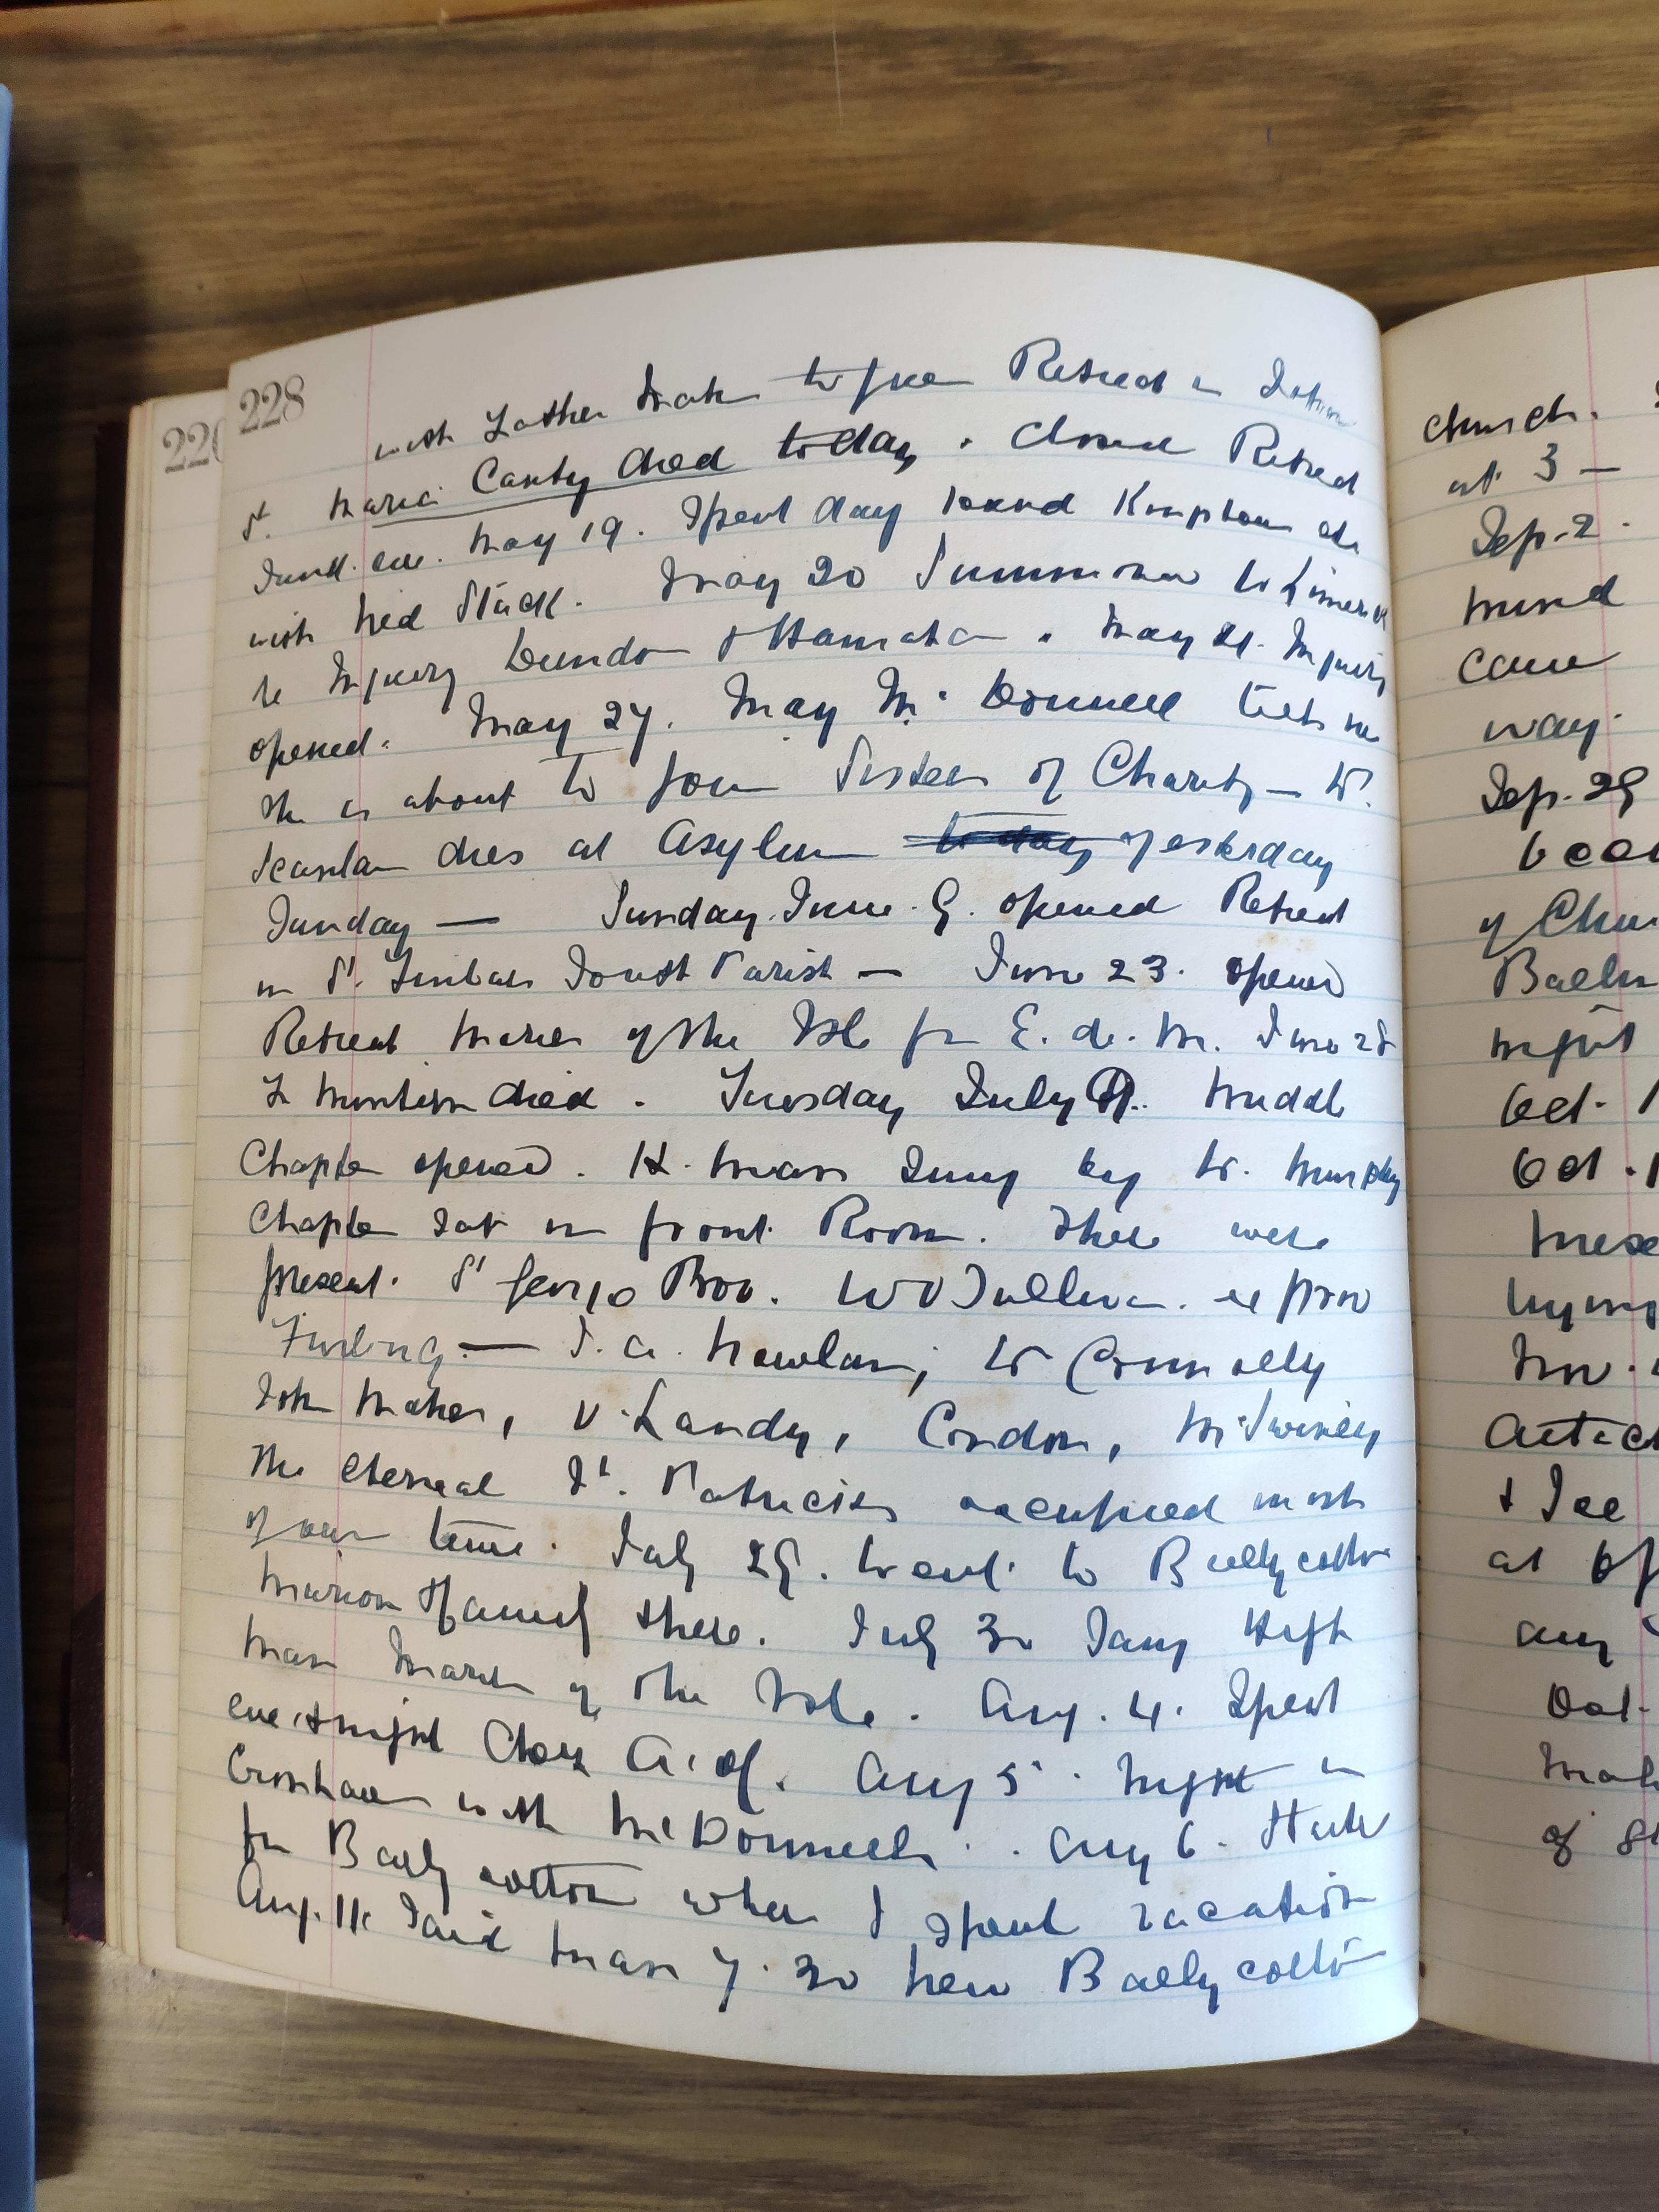 228
226
with Father to give Retreat in
Sr. Maria Canty died today. Closed Retreat
Sund. eve. May 19. Spent day round Kingstown etc
with Ned Stack. May 20 Summoned to Limerick
re Inquiry Dundon & Hannata. May 21. Inquiry
opened. May 27. May McDonnell tells me
she is about to join Sisters of Charity — W.
Scanlan dies at Asylum today yesterday
Sunday — Sunday. June 9. opened Retreat
in St. Finbars South Parish — June 23. opened
Retreat Maries of the Isle for E. de. M. June 28
died. Tuesday July 9. Middle
Chapter opened. H. Mass Sung by W. Murphy
Chapter sat in front Room. There were
present. St George Bro. W O'Sullivan. ex prov
Furlong — J. A. Nowlan, W Connolly
John Maher, V. Landy, Condon, McSwiney
The eternal St. Patricks occupied most
of our time. July 29. Went to Ballycotton
there. July 30 Sang High
Mass Maries of the Isle. Aug. 4. Spent
eve & night Chez A. of. Aug 5. Night in
Crosshaven with McDonnells. Aug 6. Start
for Ballycotton where I spent vacation
Aug. 11. Said Mass 7.30 New Ballycotton
church.
at 3 —
Sep. 2.
mind
came
way.
Sep. 29
of
night
Oct. 1
Oct. 1
& See
at
any
Oct.
of